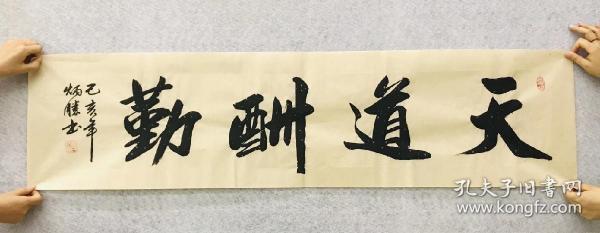 天道酬勤
己亥年
炳胜书
孔夫子旧书网
www.kongfz.com